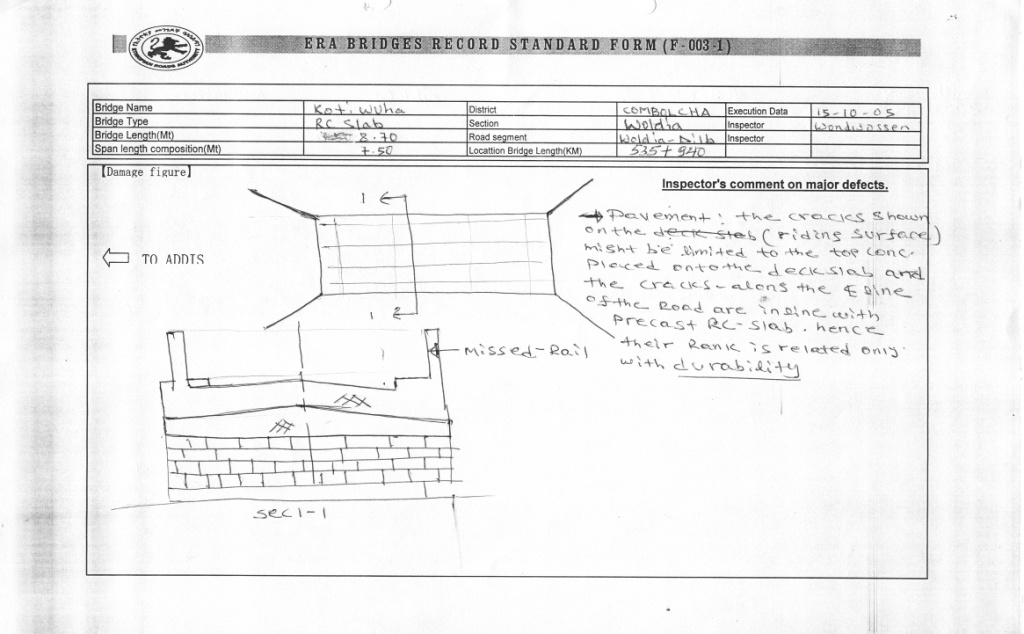 ERA BRIDGES RECORD STANDARD FORM (F-003-1)
Bridge Name Koti Wuha District COMBOLCHA Execution Data 15-10-05
Bridge Type RC Slab Section Woldia Inspector Wondwossen
Bridge Length(Mt) 8.70 Road segment Woldia-Dilb Inspector
Span length composition(Mt) 7.50 Locattion Bridge Length(KM) 535+940
[Damage figure]
Inspector's comment on major defects.
1
Pavement: the cracks shown
on the deck slab (riding surface)
might be limited to the top conc.
placed onto the deck slab and
the cracks-along the ℄ line
of the Road are inline with
precast RC-slab. hence
their Rank is related only
with durability
TO ADDIS
1
Missed-Rail
sec 1-1